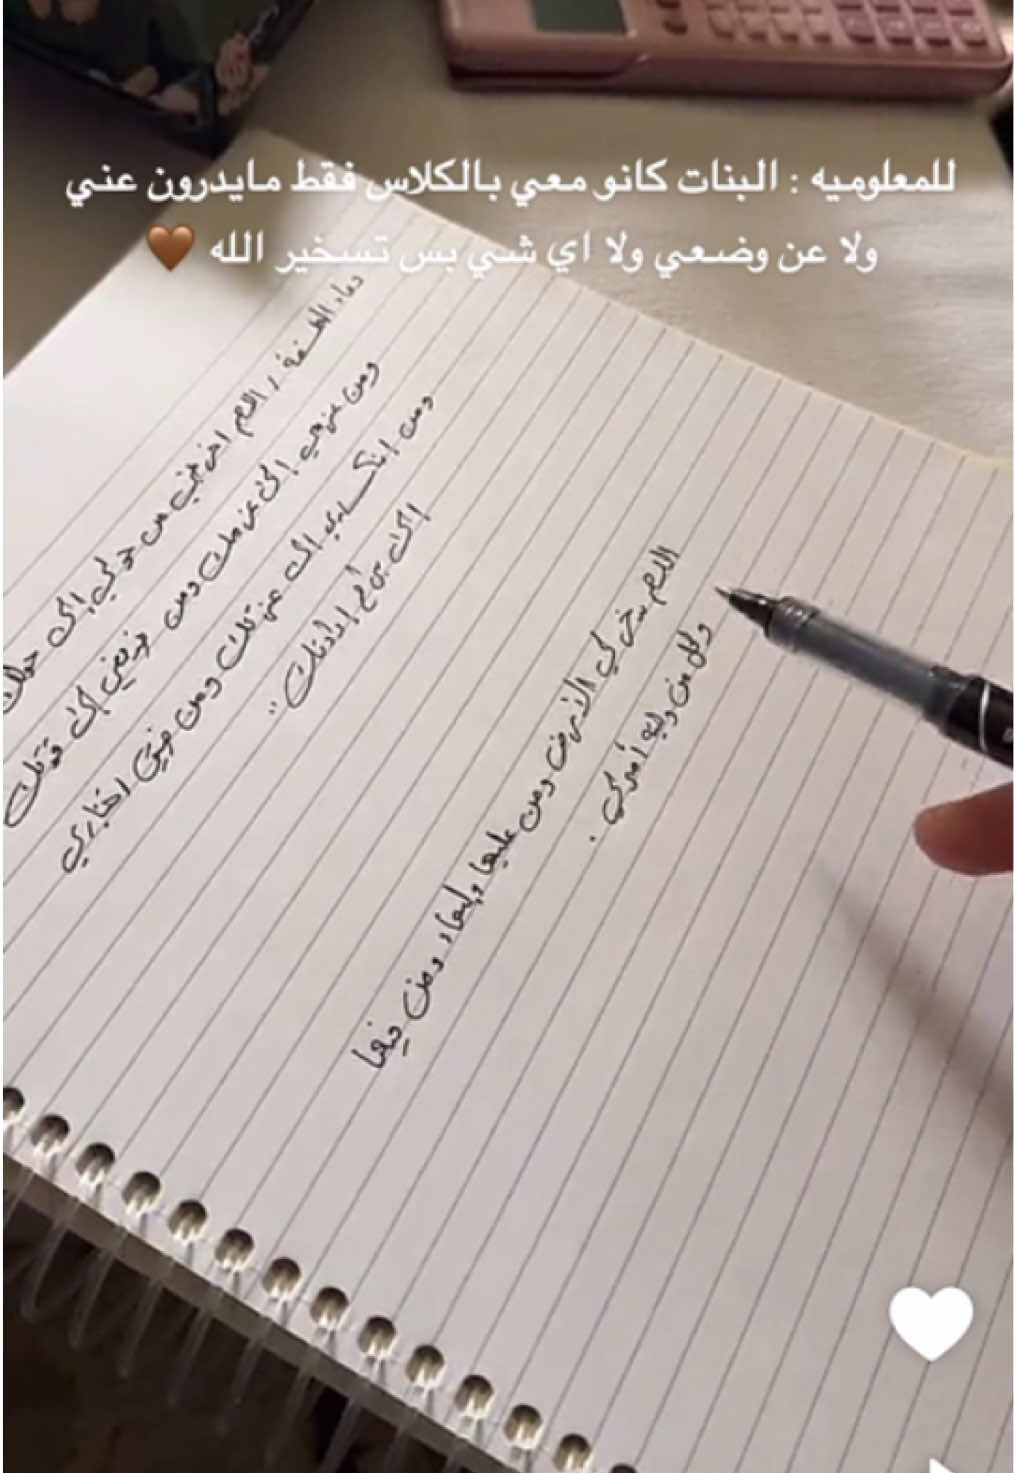 للمعلوميه : البنات كانو معي بالكلاس فقط مايدرون عني
ولا عن وضعي ولا اي شي بس تسخير الله 🤎
دعاء : اللهم اخرجني من حولي إلى حولك
ومن عزمي إلى عزمك ومن ضعفي إلى قوتك
ومن إنكساري إلى عزتك ومن ضيق اختياري
إلى براح إرادتك"
اللهم سخر لي الأرض ومن عليها والسماء ومن فيها
وكل من وليته أمري .